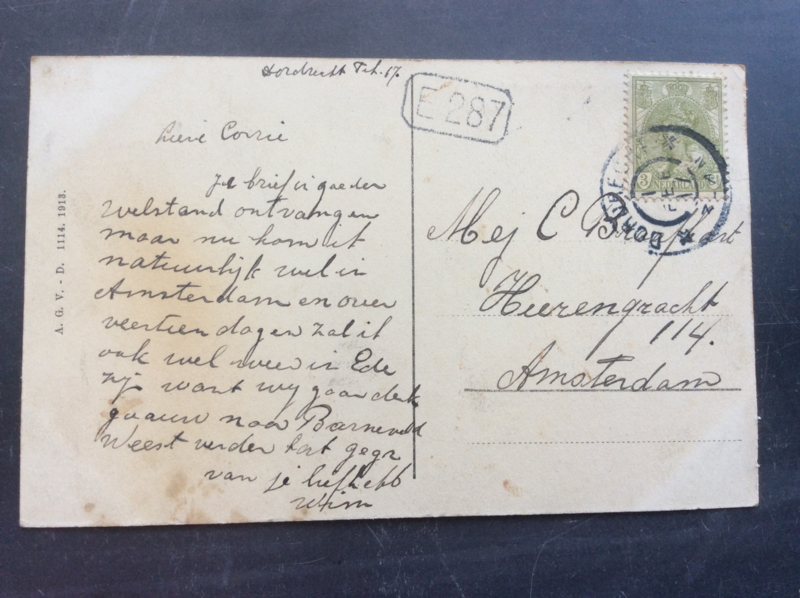 Dordrecht Feb. 17.
E 287
Lieve Corrie
Je brief in goeden
welstand ontvangen
maar nu kom ik
natuurlijk wel in
Amsterdam en over
veertien dagen zal ik
ook wel weer in Ede
zijn want wij gaan denk
gaauw naar Barneveld
Weest verder hart gegr
van je liefhebb
Wim
A. G. V. - D. 1114. 1913.
3
NEDERLAND
DORDRECHT
Mej C
Heerengracht
114.
Amsterdam